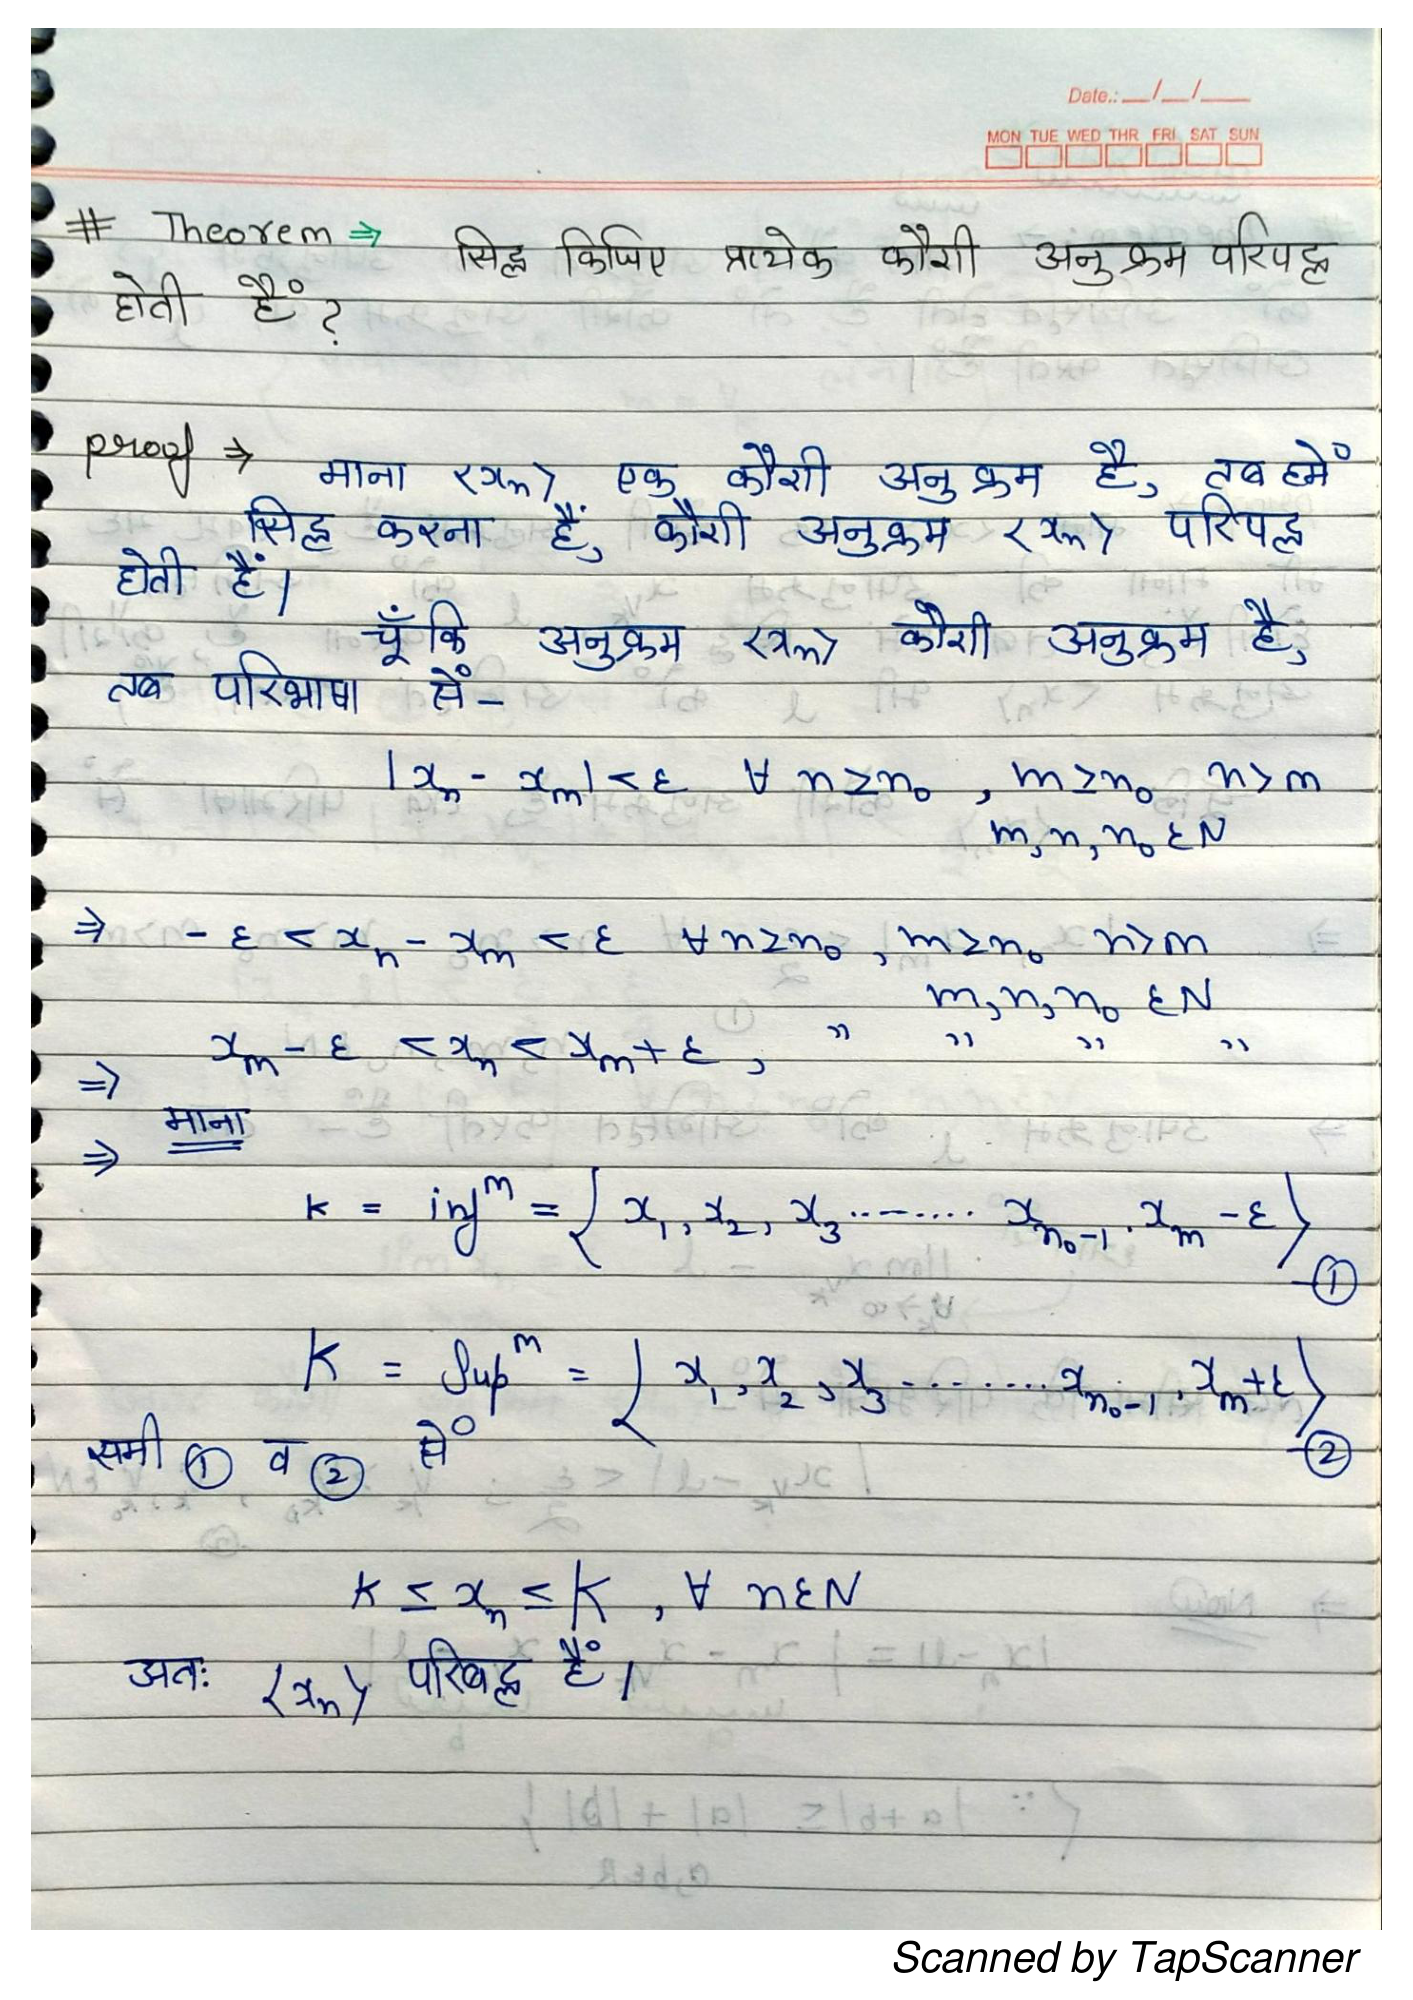 Date.: __/__/____
MON TUE WED THR FRI SAT SUN
# Theorem ⇒ सिद्ध किजिए प्रत्येक कौशी अनुक्रम परिपद्ध
होती हैं ?
proof ⇒ माना <xn> एक कौशी अनुक्रम है, तब हमें
सिद्ध करना हैं, कौशी अनुक्रम <xn> परिपद्ध
होती हैं।
चूँकि अनुक्रम <xn> कौशी अनुक्रम है,
तब परिभाषा सें -
|xn - xm| < ε ∀ n ≥ n0 , m ≥ n0 n > m
m, n, n0 ε N
⇒ - ε < xn - xm < ε ∀ n ≥ n0 , m ≥ n0 n > m
m, n, n0 ε N
⇒ xm - ε < xn < xm + ε , " " " "
⇒ माना
k = inf^m = { x1, x2, x3 ........ xn0-1, xm - ε } ①
K = Sup^m = { x1, x2, x3 ........ xn0-1, xm + ε } ②
समी ① व ② सें
k ≤ xn ≤ K , ∀ n ε N
अतः <xn> परिबद्ध हैं।
Scanned by TapScanner